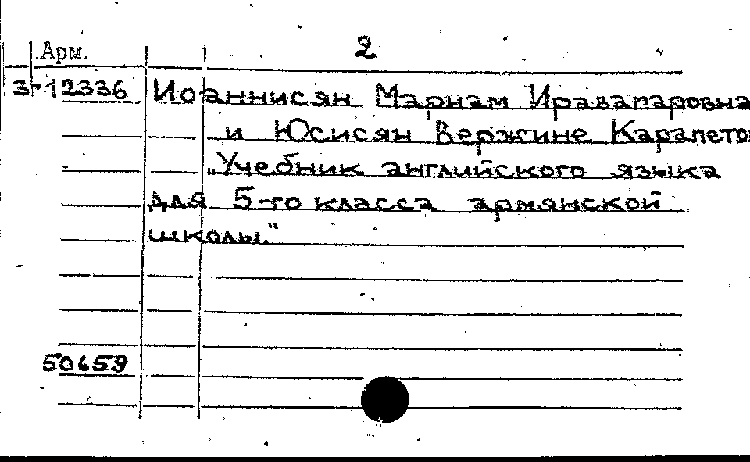 Арм. 2
3-12336 Иоаннисян Мариам Иравапаровна
и Юсисян Вержине Карапетов
„Учебник английского языка
для 5-го класса армянской
школы."
50659